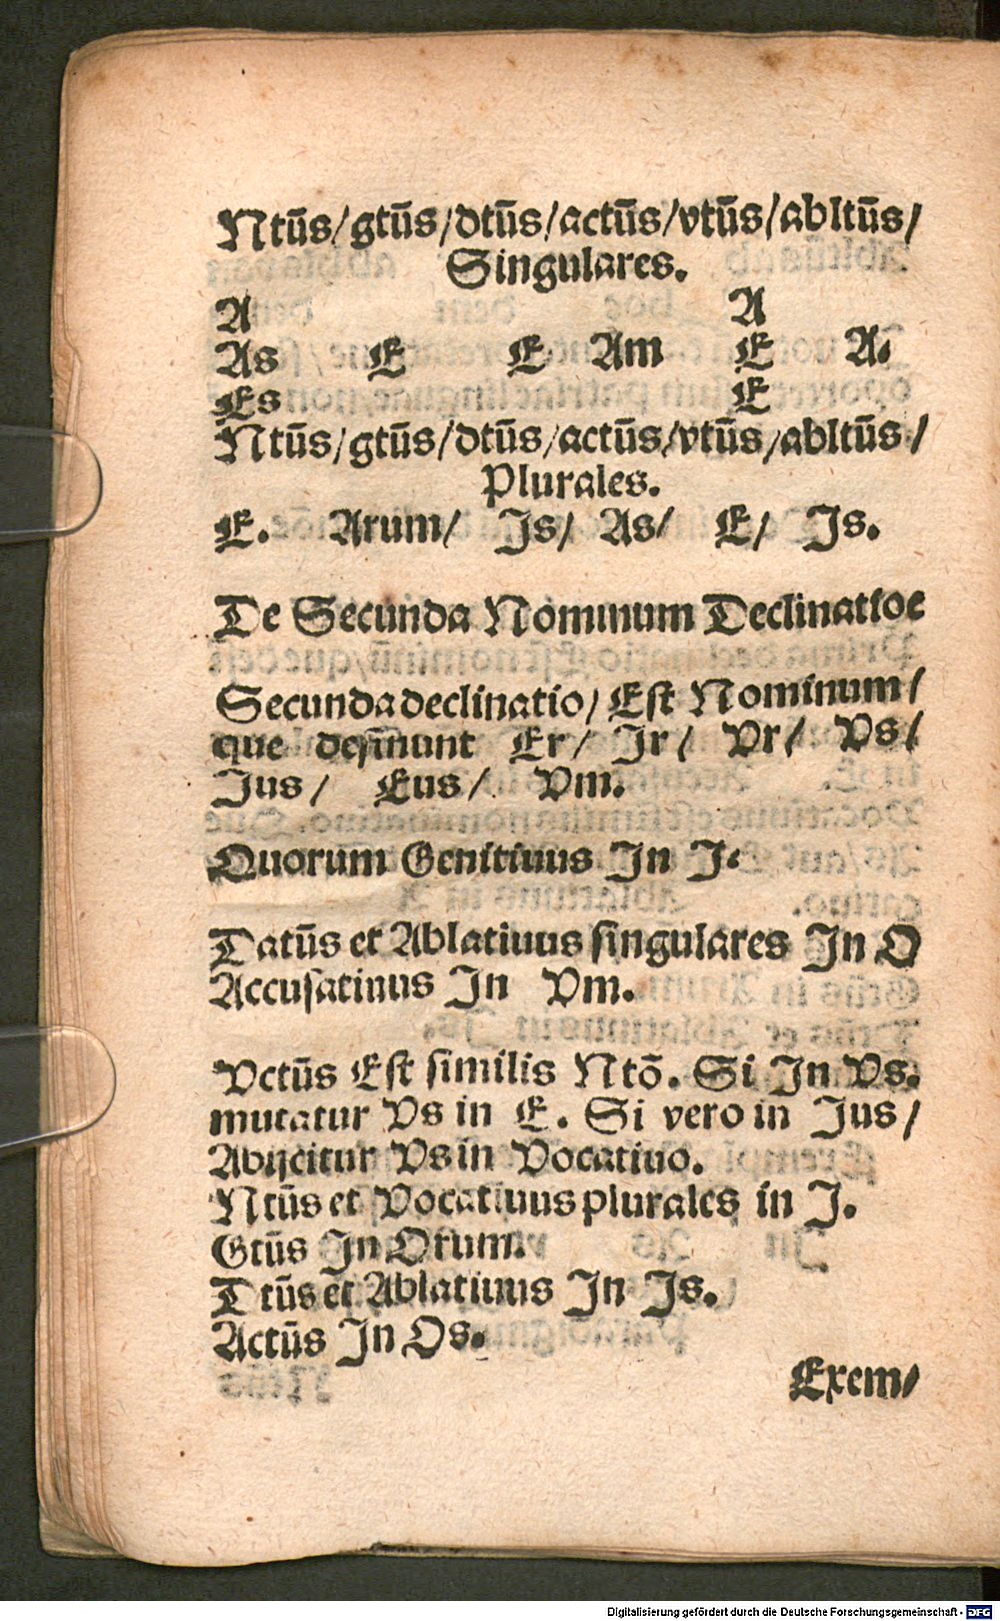 Ntũs/gtũs/dtũs/actũs/vtũs/abltũs/
Singulares.
A A
As E E Am E A.
Es E
Ntũs/gtũs/dtũs/actũs/vtũs/abltũs/
Plurales.
E. Arum/ Js/ As/ E/ Js.
De Secunda Nominum Declinatioe
Secunda declinatio/ Est Nominum/
que desinunt Er/ Jr/ Vr/ Vs/
Jus/ Eus/ Vm.
Quorum Genitiuus Jn J.
Datũs et Ablatiuus singulares Jn O
Accusatiuus Jn Vm.
Vctũs Est similis Ntõ. Si Jn Vs.
mutatur Vs in E. Si vero in Jus/
Abijcitur Vs in Vocatiuo.
Ntũs et Vocatiuus plurales in J.
Gtũs Jn Orum.
Dtũs et Ablatiuus Jn Js.
Actũs Jn Os.
Exem/
Digitalisierung gefördert durch die Deutsche Forschungsgemeinschaft - DFG